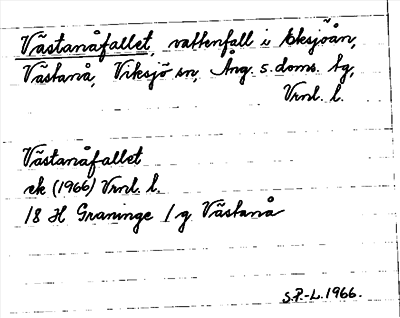 Västanåfallet, vattenfall i Eksjöån,
Västanå, Viksjö sn, Ång. s. doms. tg,
Vrnl. l.
Västanåfallet
ek (1966) Vrnl. l.
18 H Graninge 1 g Västanå
S.P.-L. 1966.